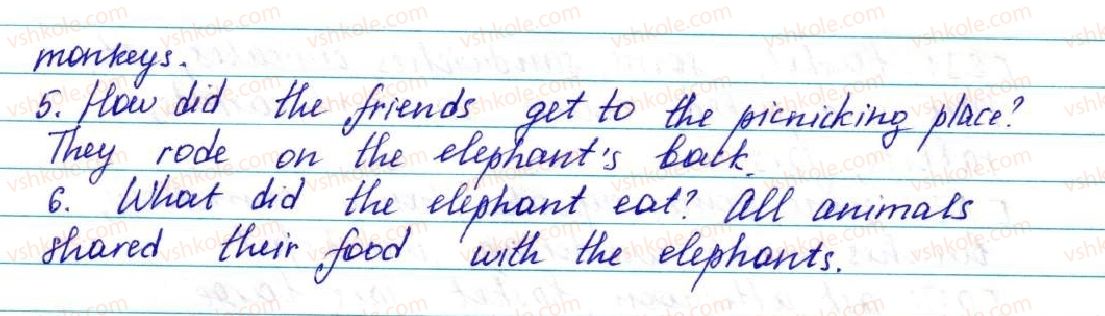 monkeys.
5. How did the friends get to the picnicking place?
They rode on the elephant's back.
6. What did the elephant eat? All animals
shared their food with the elephants.